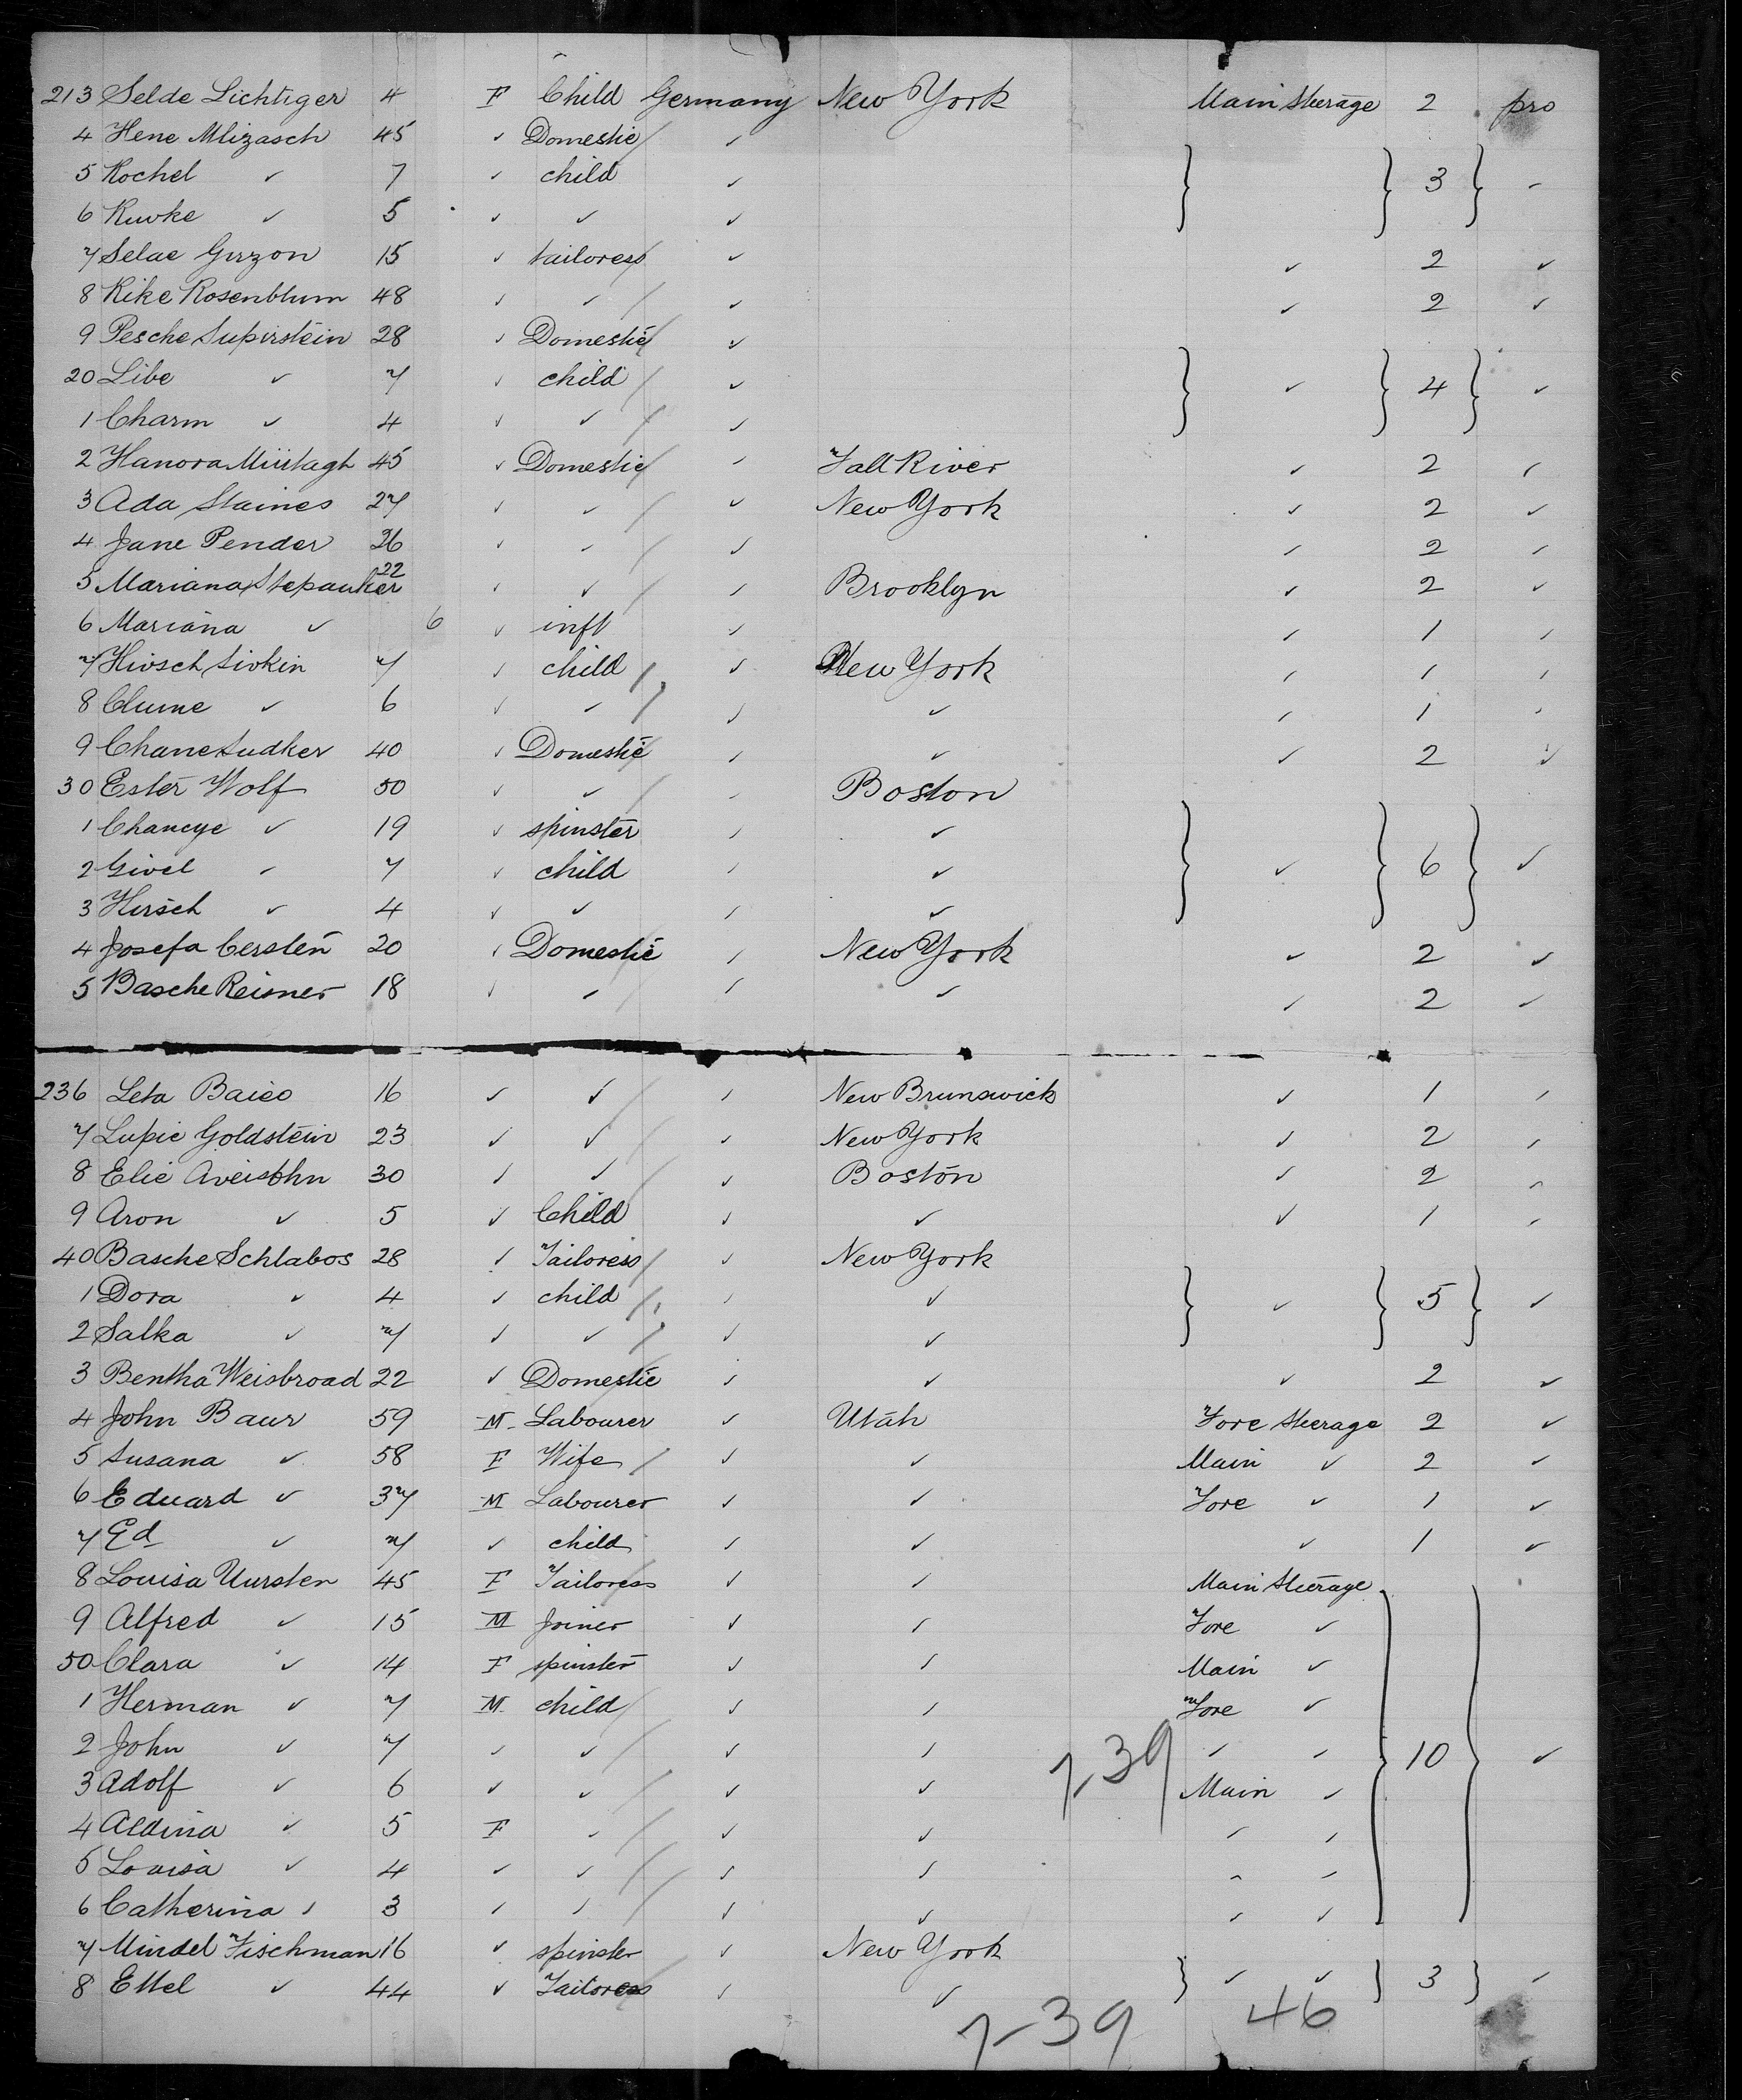 213 Selde Lichtiger 4 F Child Germany New York Main Steerage 2 pro
4 Hene Mlizasch 45 ✓ Domestic ✓
5 Rochel ✓ 7 ✓ child ✓ 3 ✓
6 Ruwke ✓ 5 ✓ ✓ ✓
7 Selae Girzon 15 ✓ tailoress ✓ ✓ 2 ✓
8 Rike Rosenblum 48 ✓ ✓ ✓ ✓ 2 ✓
9 Pesche Supirstein 28 ✓ Domestic ✓
20 Libe ✓ 7 ✓ child ✓ ✓ 4 ✓
1 Charm ✓ 4 ✓ ✓ ✓
2 Hanora Murtagh 45 ✓ Domestic ✓ Fall River ✓ 2 ✓
3 Ada Staines 27 ✓ ✓ ✓ New York ✓ 2 ✓
4 Jane Pender 26 ✓ ✓ ✓ ✓ 2 ✓
5 Mariana Stepanker 22 ✓ ✓ ✓ Brooklyn ✓ 2 ✓
6 Mariana ✓ 6 ✓ inft ✓ ✓ 1 ✓
7 Hirsch Sivkin 7 ✓ child ✓ New York ✓ 1 ✓
8 Clume ✓ 6 ✓ ✓ ✓ ✓ ✓ 1 ✓
9 Chane Sudker 40 ✓ Domestic ✓ ✓ ✓ 2 ✓
30 Ester Wolf 50 ✓ ✓ ✓ Boston
1 Chancye ✓ 19 ✓ spinster ✓ ✓
2 Givel ✓ 7 ✓ child ✓ ✓ ✓ 6 ✓
3 Hirsch ✓ 4 ✓ ✓ ✓ ✓
4 Josefa Cersten 20 ✓ Domestic ✓ New York ✓ 2 ✓
5 Basche Reisner 18 ✓ ✓ ✓ ✓ ✓ 2 ✓
236 Leta Baico 16 ✓ ✓ ✓ New Brunswick ✓ 1 ✓
7 Lupie Goldstein 23 ✓ ✓ ✓ New York ✓ 2 ✓
8 Elie Aveisohn 30 ✓ ✓ ✓ Boston ✓ 2 ✓
9 Aron ✓ 5 ✓ Child ✓ ✓ ✓ 1 ✓
40 Basche Schlabos 28 ✓ Tailoress ✓ New York
1 Dora ✓ 4 ✓ child ✓ ✓ ✓ 5 ✓
2 Salka ✓ 7 ✓ ✓ ✓ ✓
3 Bentha Weisbroad 22 ✓ Domestic ✓ ✓ ✓ 2 ✓
4 John Baur 59 M Labourer ✓ Utah Fore Steerage 2 ✓
5 Susana ✓ 58 F Wife ✓ ✓ Main ✓ 2 ✓
6 Eduard ✓ 37 M Labourer ✓ ✓ Fore ✓ 1 ✓
7 Ed ✓ 7 ✓ child ✓ ✓ ✓ 1 ✓
8 Louisa Uursten 45 F Tailoress ✓ ✓ Main Steerage
9 Alfred ✓ 15 M Joiner ✓ ✓ Fore ✓
50 Clara ✓ 14 F spinster ✓ ✓ Main ✓
1 Herman ✓ 7 M child ✓ ✓ Fore ✓
2 John ✓ 7 ✓ ✓ ✓ ✓ ✓ ✓ 10 ✓
3 Adolf ✓ 6 ✓ ✓ ✓ ✓ 7-39 Main ✓
4 Aldina ✓ 5 F ✓ ✓ ✓ ✓ ✓
5 Louisa ✓ 4 ✓ ✓ ✓ ✓ ✓ ✓
6 Catherina ✓ 3 ✓ ✓ ✓ ✓ ✓ ✓
7 Mindel Fischman 16 ✓ spinster ✓ New York
8 Ettel ✓ 44 ✓ Tailoress ✓ ✓ ✓ ✓ 3 ✓
7-39 46